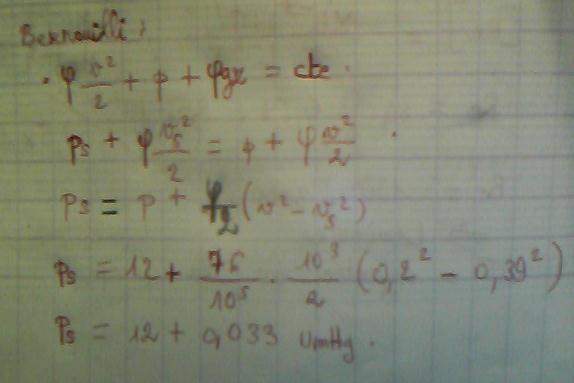 Bernouilli :
. φ v²/2 + p + φgx = cte .
Ps + φ vs²/2 = p + φ v²/2 .
Ps = P + φ/2 (v² - vs²)
Ps = 12 + 76/10⁵ . 10³/2 (0,2² - 0,39²)
Ps = 12 + 0,033 cmHg .